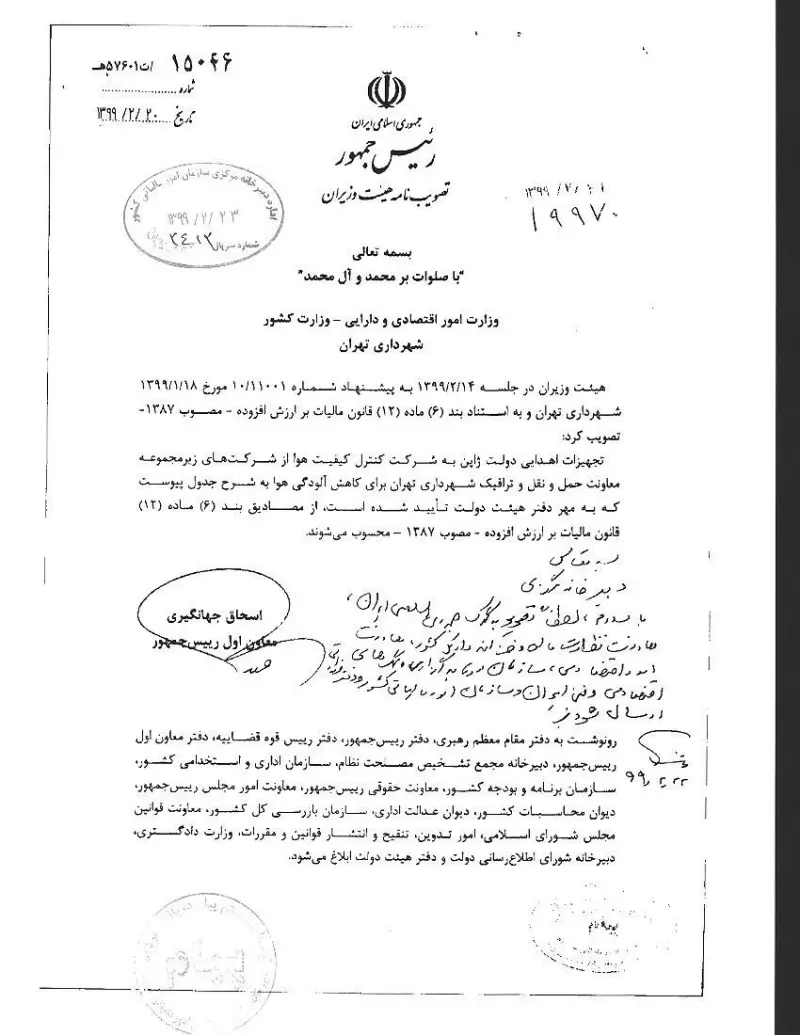 ۱۵۰۴۴ /ت۵۷۶۰۱هـ
شماره
تاریخ ۱۳۹۹/۲/۲۰
جمهوری اسلامی ایران
رئیس جمهور
تصویب نامه هیئت وزیران
اداره دبیرخانه مرکزی سازمان امور مالیاتی کشور
۱۳۹۹/۲/۲۳
شماره سریال
۱۹۹۷۰
بسمه تعالی
"با صلوات بر محمد و آل محمد"
وزارت امور اقتصادی و دارایی – وزارت کشور
شهرداری تهران
هیئت وزیران در جلسه ۱۳۹۹/۲/۱۴ به پیشنهاد شماره ۱۰/۱۱۰۰۱ مورخ ۱۳۹۹/۱/۱۸
شهرداری تهران و به استناد بند (۶) ماده (۱۲) قانون مالیات بر ارزش افزوده - مصوب ۱۳۸۷-
تصویب کرد:
تجهیزات اهدایی دولت ژاپن به شرکت کنترل کیفیت هوا از شرکت‌های زیرمجموعه
معاونت حمل و نقل و ترافیک شهرداری تهران برای کاهش آلودگی هوا به شرح جدول پیوست
که به مهر دفتر هیئت دولت تأیید شده است، از مصادیق بند (۶) ماده (۱۲)
قانون مالیات بر ارزش افزوده - مصوب ۱۳۸۷ - محسوب می‌شوند.
دبیرخانه مرکزی
اسحاق جهانگیری
معاون اول رییس‌جمهور
ارسال شود
رونوشت به دفتر مقام معظم رهبری، دفتر رییس‌جمهور، دفتر رییس قوه قضاییه، دفتر معاون اول
رییس‌جمهور، دبیرخانه مجمع تشخیص مصلحت نظام، سازمان اداری و استخدامی کشور،
سازمان برنامه و بودجه کشور، معاونت حقوقی رییس‌جمهور، معاونت امور مجلس رییس‌جمهور،
دیوان محاسبات کشور، دیوان عدالت اداری، سازمان بازرسی کل کشور، معاونت قوانین
مجلس شورای اسلامی، امور تدوین، تنقیح و انتشار قوانین و مقررات، وزارت دادگستری،
دبیرخانه شورای اطلاع‌رسانی دولت و دفتر هیئت دولت ابلاغ می‌شود.